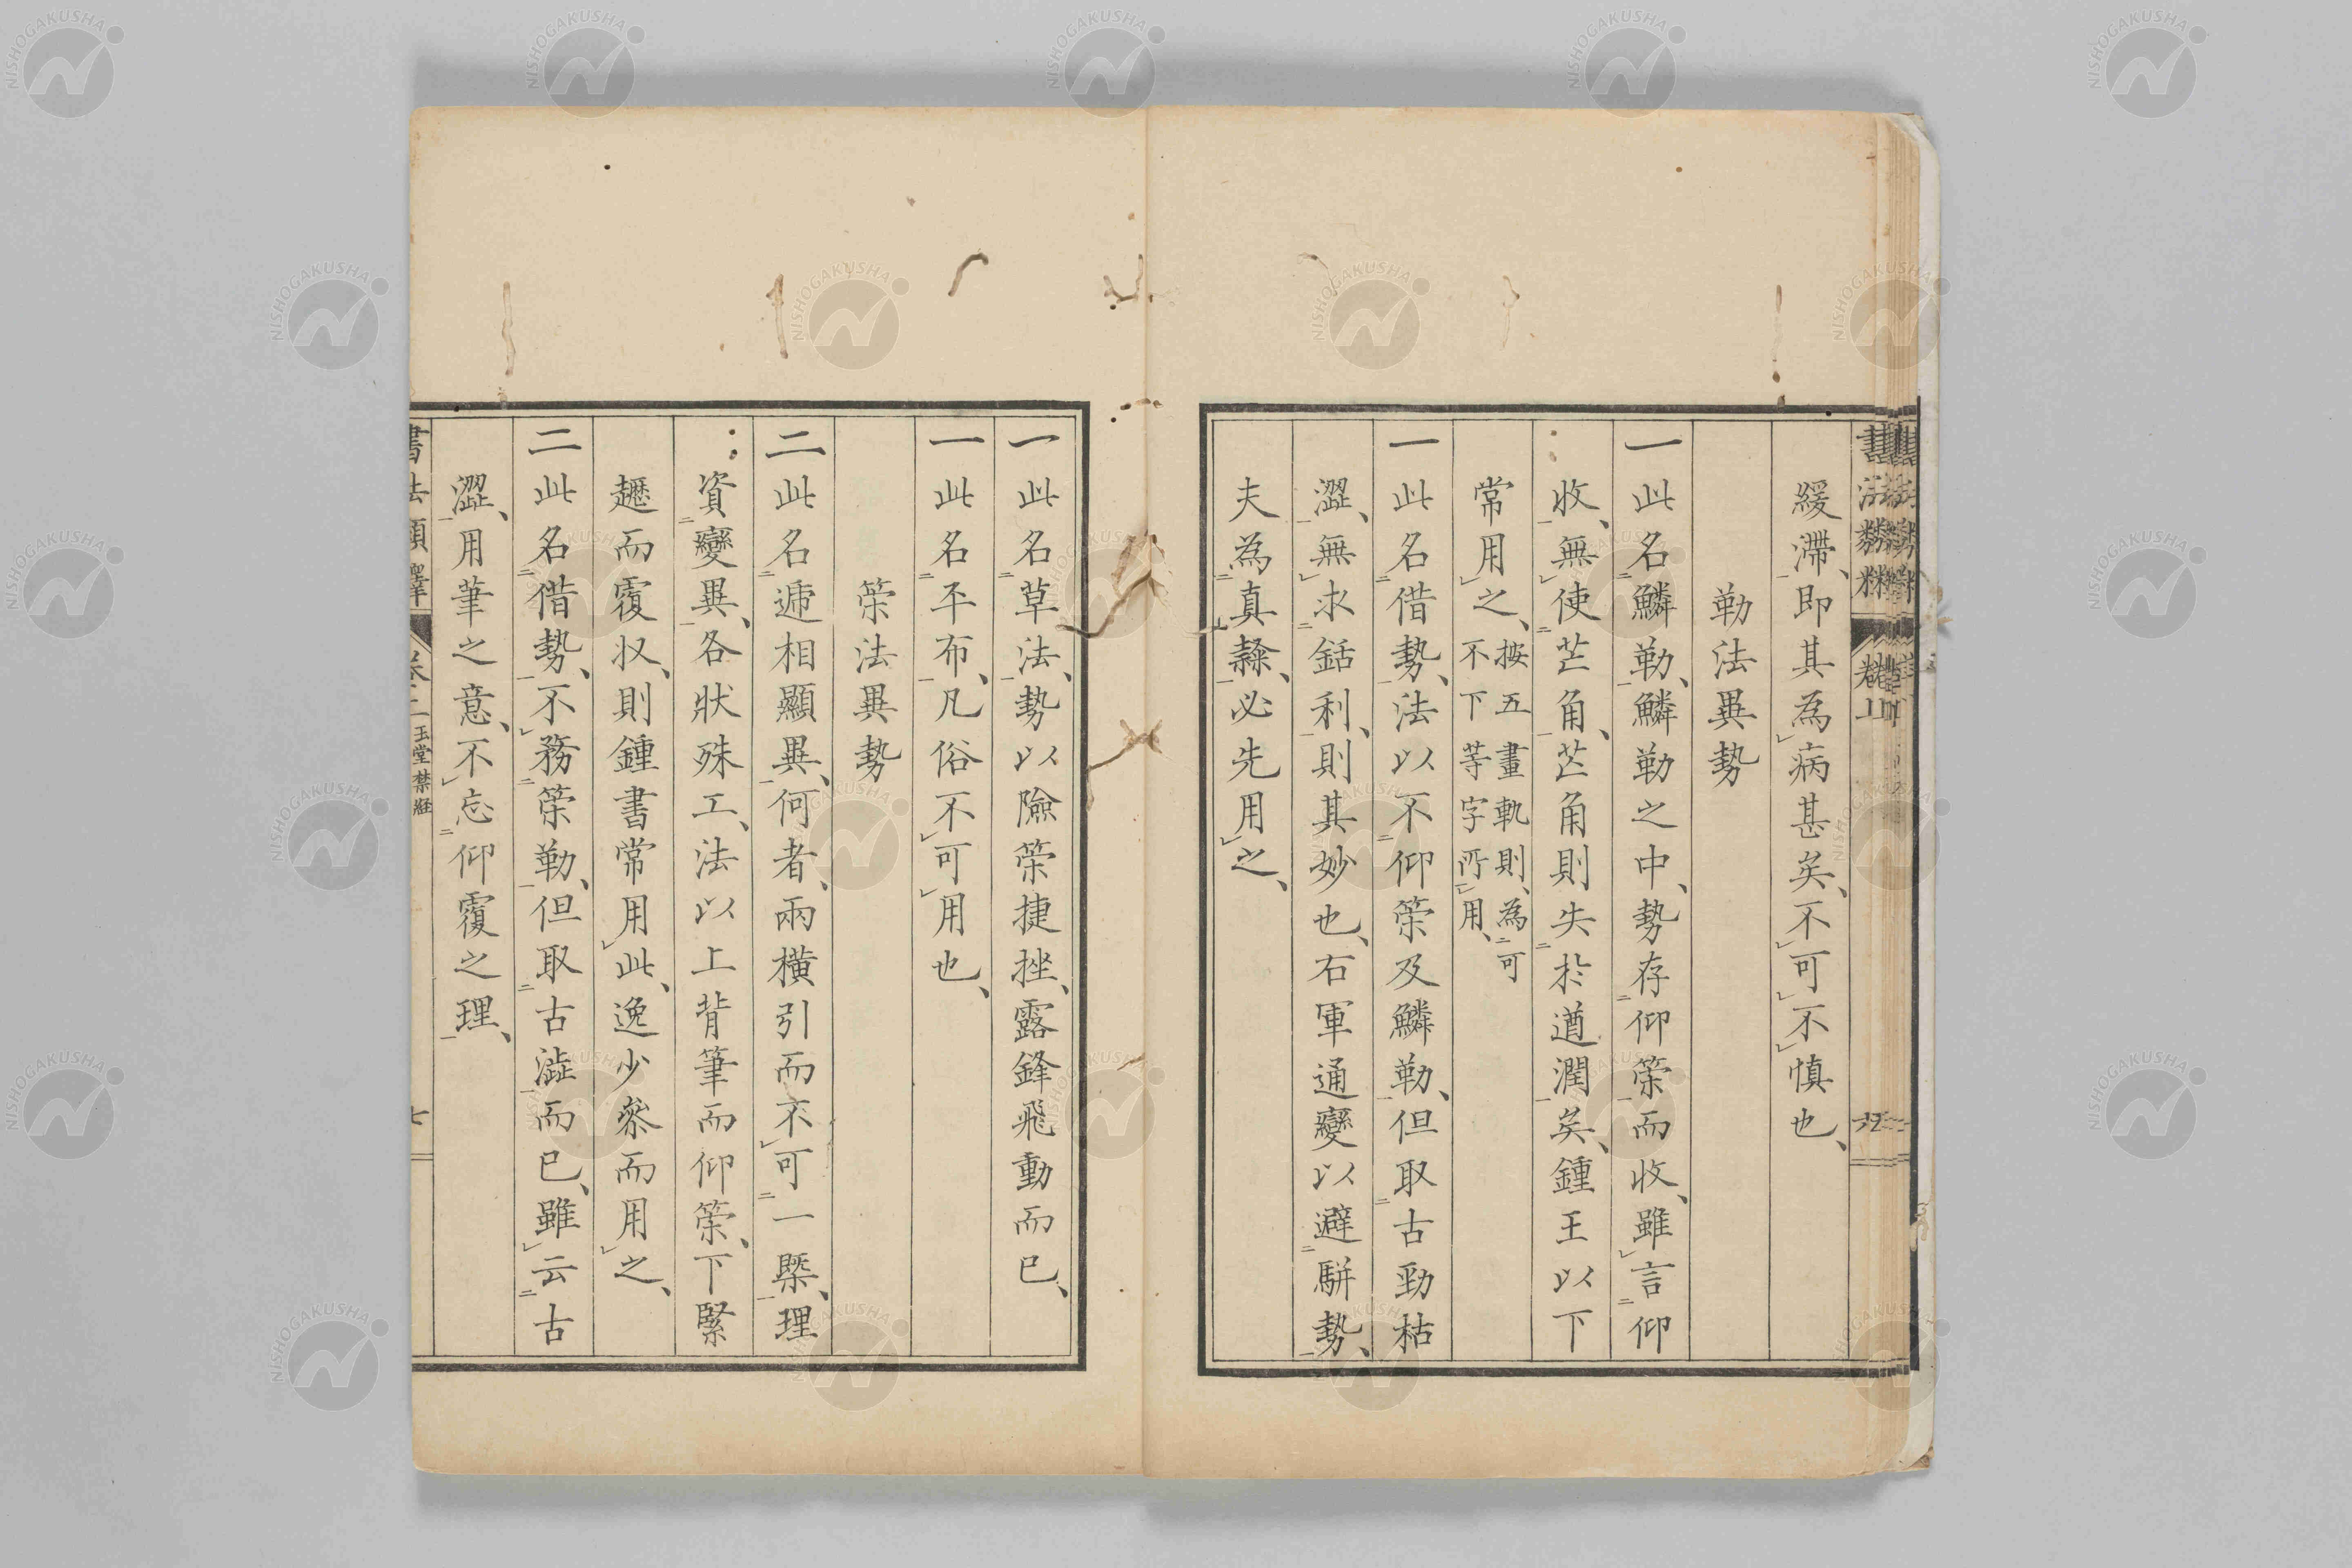 緩滯、即其為病甚矣、不可不慎也、
勒法異勢
一此名鱗勒、鱗勒之中、勢存仰策而收、雖言仰
收、無使芒角、芒角則失於遒潤矣、鍾王以下
常用之、按五畫軌則、為可
不下等字所用、
一此名借勢、法以不仰策及鱗勒、但取古勁枯
澀、無求銛利、則其妙也、右軍通變以避駢勢、
夫為真隸、必先用之、
一此名草法、勢以險策捷挫、露鋒飛動而已、
一此名平布、凡俗不可用也、
策法異勢
二此名遞相顯異、何者、兩橫引而不可一槩、理
資變異、各狀殊工、法以上背筆而仰策、下緊
趯而覆收、則鍾書常用此、逸少參而用之、
二此名借勢、不務策勒、但取古澁而已、雖云古
澀、用筆之意、不忘仰覆之理、
書法類釋 卷二 玉堂禁経 七
NISHOGAKUSHA